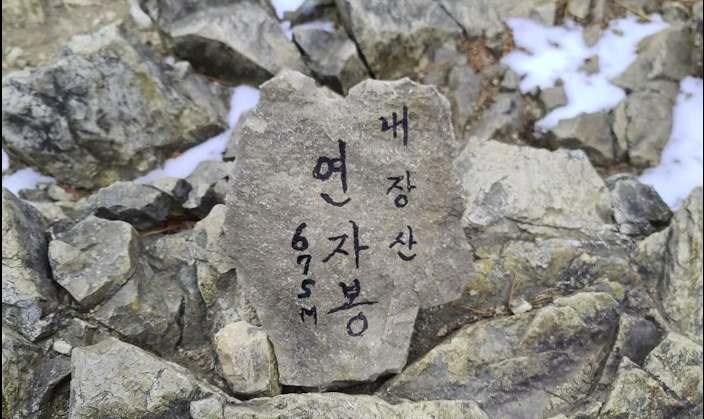 내장산
연자봉
675M